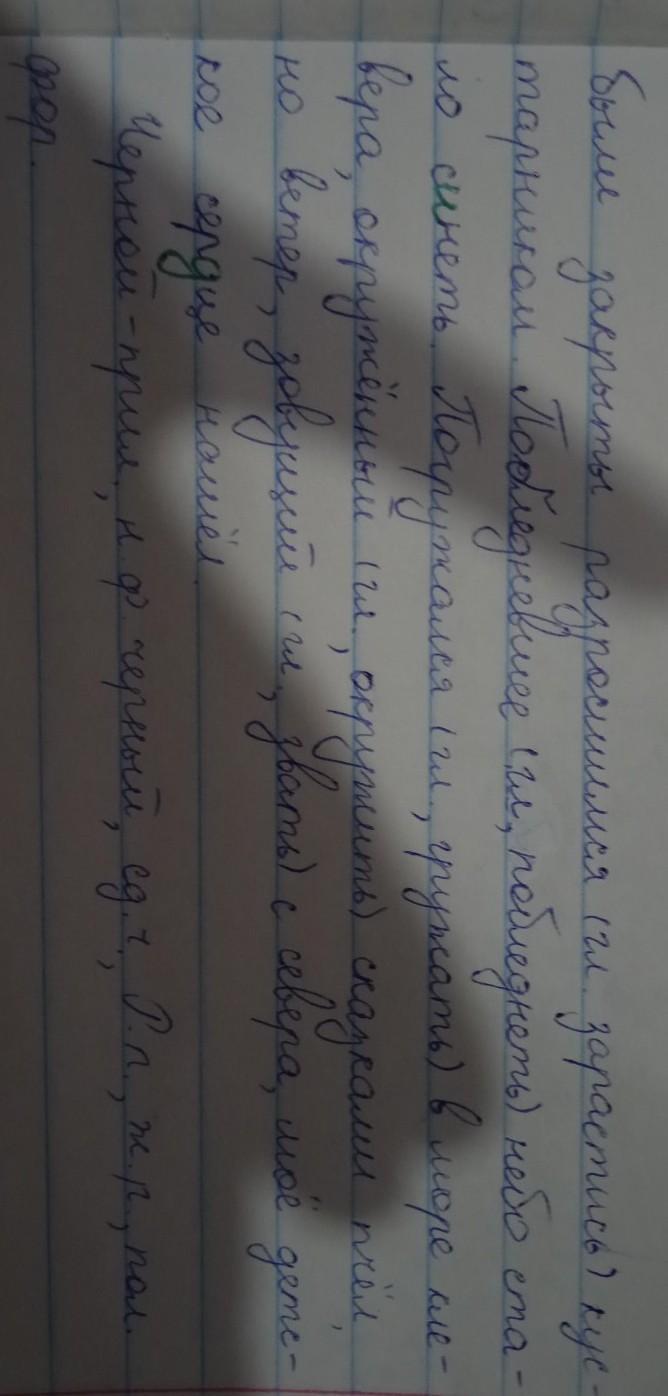 были закрыты разросшимся (гл. зарастись) кус-
тарником. Побледневшее (гл., побледнеть) небо ста-
ло синеть. Погружался (гл., гружать) в море кле-
вера, окружённый (гл., окружить) сказками пчёл,
но ветер, зовущий (гл., звать) с севера, моё детс-
кое сердце нашёл.
Черной - прил., н.ф. черный, ед.ч., Р.п., ж.р., пол.
фор.